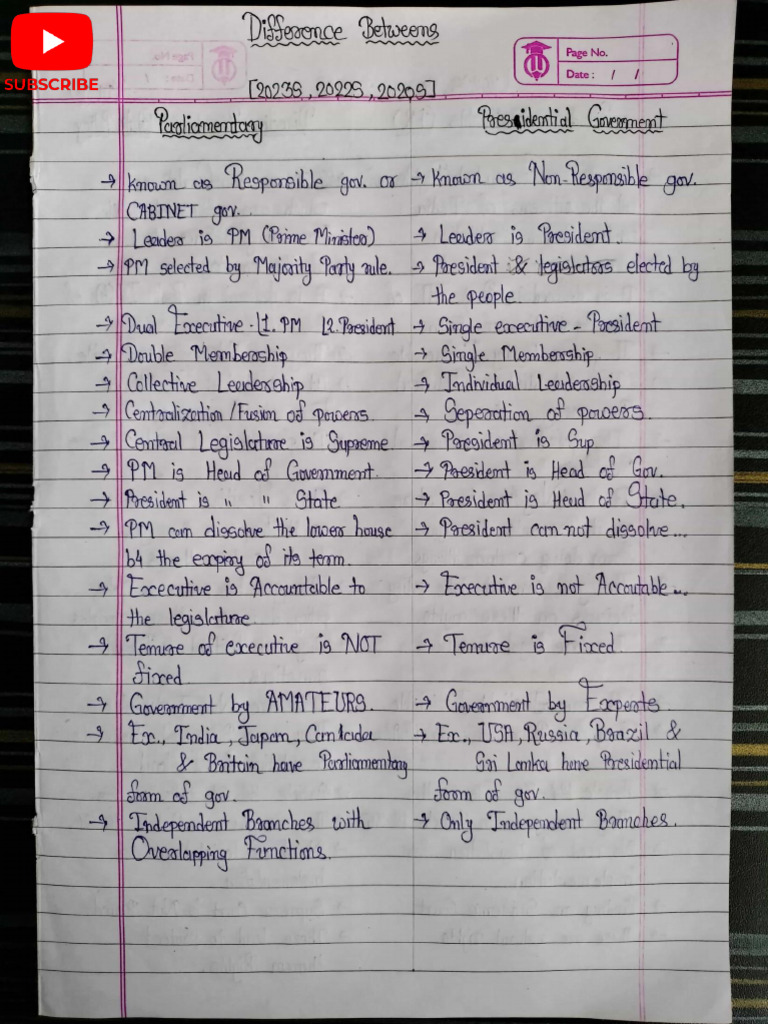 SUBSCRIBE
Difference Betweens
Page No.
Date : / /
[2023S, 2022S, 2020S]
Parliamentary
Presidential Goverment
→ Known as Responsible gov. or
CABINET gov.
→ Known as Non-Responsible gov.
→ Leader is PM (Prime Minister)
→ Leader is President.
→ PM selected by Majority Party rule.
→ President & legislators elected by
the people.
→ Dual Executive - 1. PM 2. President
→ Single executive - President
→ Double Membership
→ Single Membership.
→ Collective Leadership
→ Individual Leadership
→ Centralization/Fusion of powers.
→ Seperation of powers.
→ Central Legislature is Supreme
→ President is Sup
→ PM is Head of Government.
→ President is Head of Gov.
→ President is " " State
→ President is Head of State.
→ PM can dissolve the lower house
b4 the expiry of its term.
→ President can not dissolve...
→ Executive is Accountaible to
the legislature.
→ Executive is not Accoutable...
→ Tenure of executive is NOT
fixed
→ Tenure is Fixed.
→ Government by AMATEURS.
→ Government by Experts
→ Ex., India, Japan, Canada
& Britain have Parliamentary
form of gov.
→ Ex., USA, Russia, Brazil &
Sri Lanka have Presidential
form of gov.
→ Independent Branches with
Overlapping Functions.
→ Only Independent Branches.